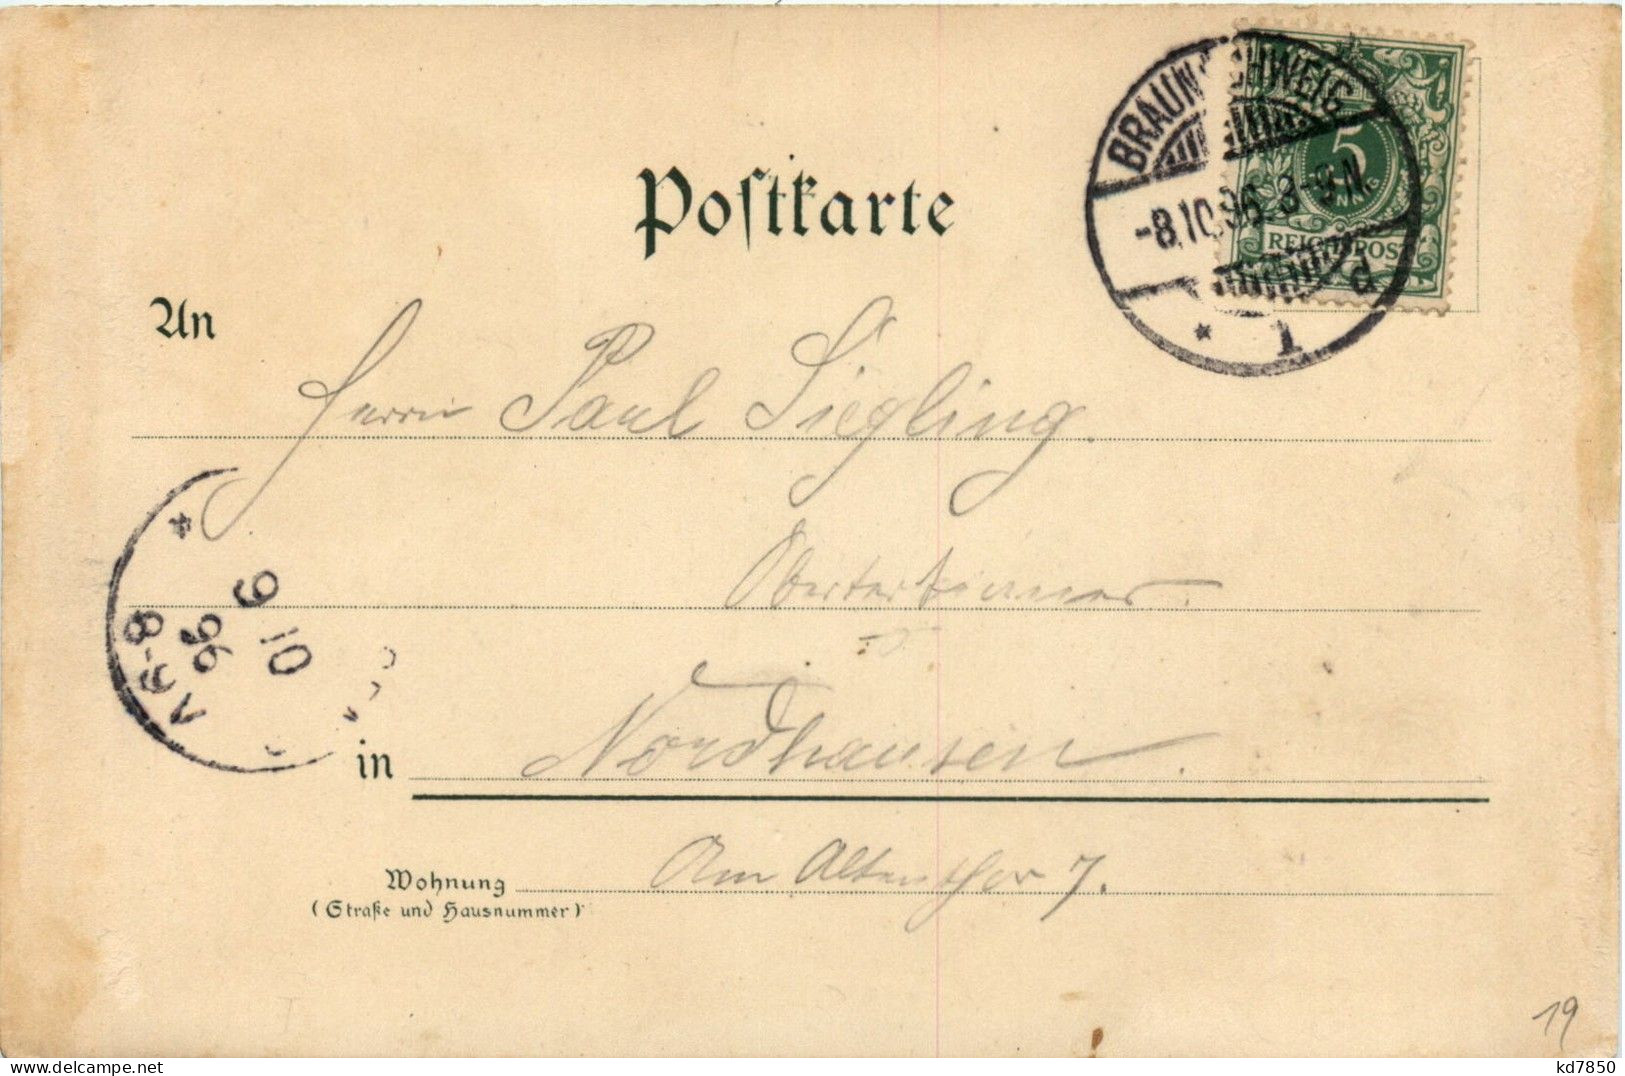 BRAUNSCHWEIG
-8.10.96. 8-9.N.
* 1 d
5
REICHSPOST
Postkarte
An
Herrn Paul Siegling.
Obertertianer.
* 9 10 96 V 6-8
in Nordhausen.
Wohnung Am Altenthor 7.
(Straße und Hausnummer)
19
delcampe.net
kd7850